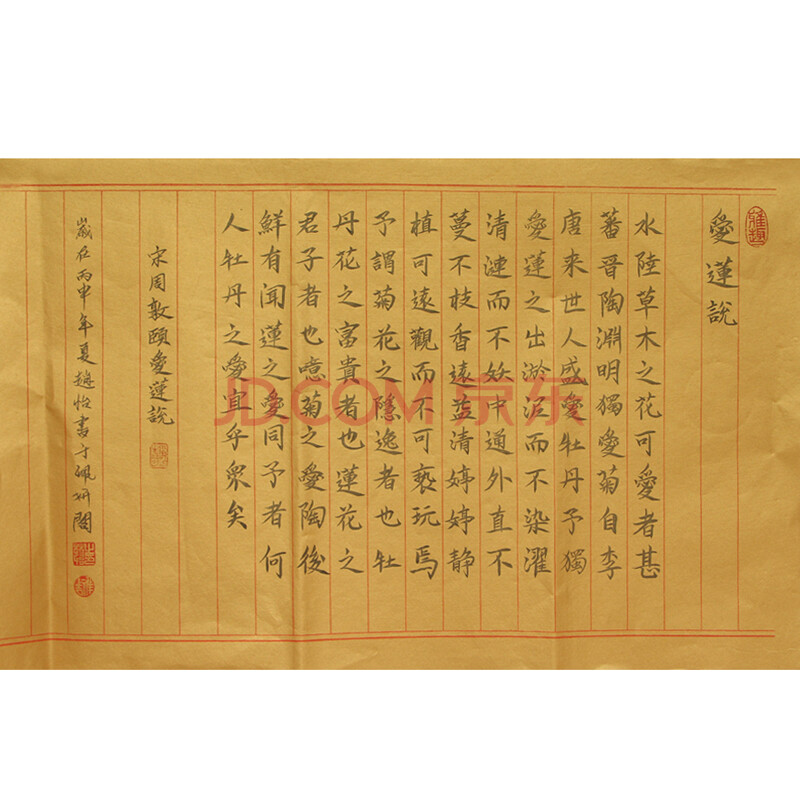 雅趣
愛蓮說
水陸草木之花可愛者甚
蕃晋陶淵明獨愛菊自李
唐来世人盛愛牡丹予獨
愛蓮之出淤泥而不染濯
清漣而不妖中通外直不
蔓不枝香遠益清婷婷静
植可遠觀而不可褻玩焉
予謂菊花之隱逸者也牡
丹花之富貴者也蓮花之
君子者也噫菊之愛陶後
鮮有聞蓮之愛同予者何
人牡丹之愛宜乎衆矣
宋周敦頤愛蓮說
歲在丙申年夏趙怡書于珮妍閣
JD.COM 京东